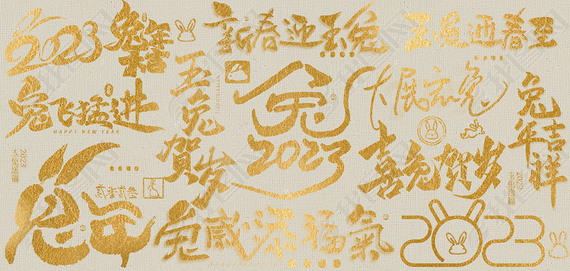 2023
兔年
新春迎玉兔
玉兔迎春至
兔飞猛进
HAPPY NEW YEAR
玉兔賀岁
兔
2023
大展宏兔
兔年吉祥
喜兔贺岁
兔年
兔歲添福氣
2023